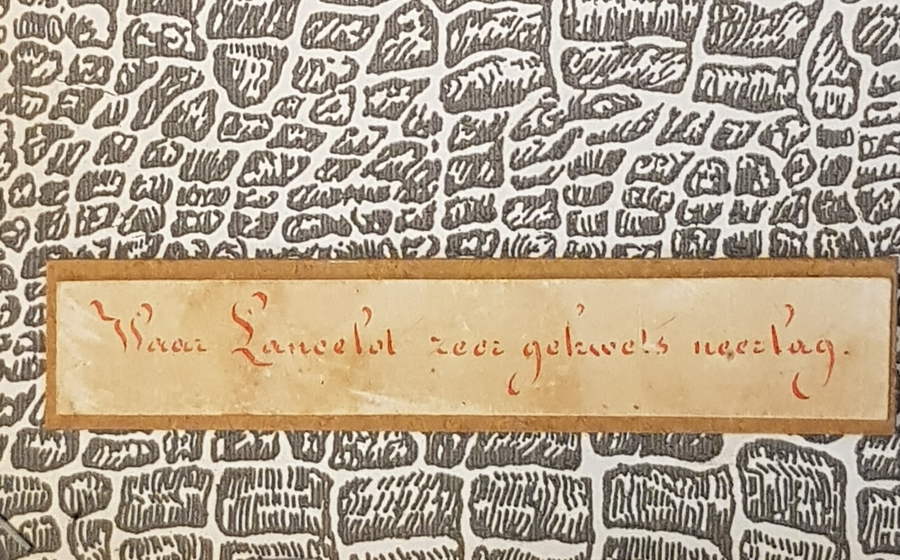 Waar Lancelot zeer gekwets neerlag.